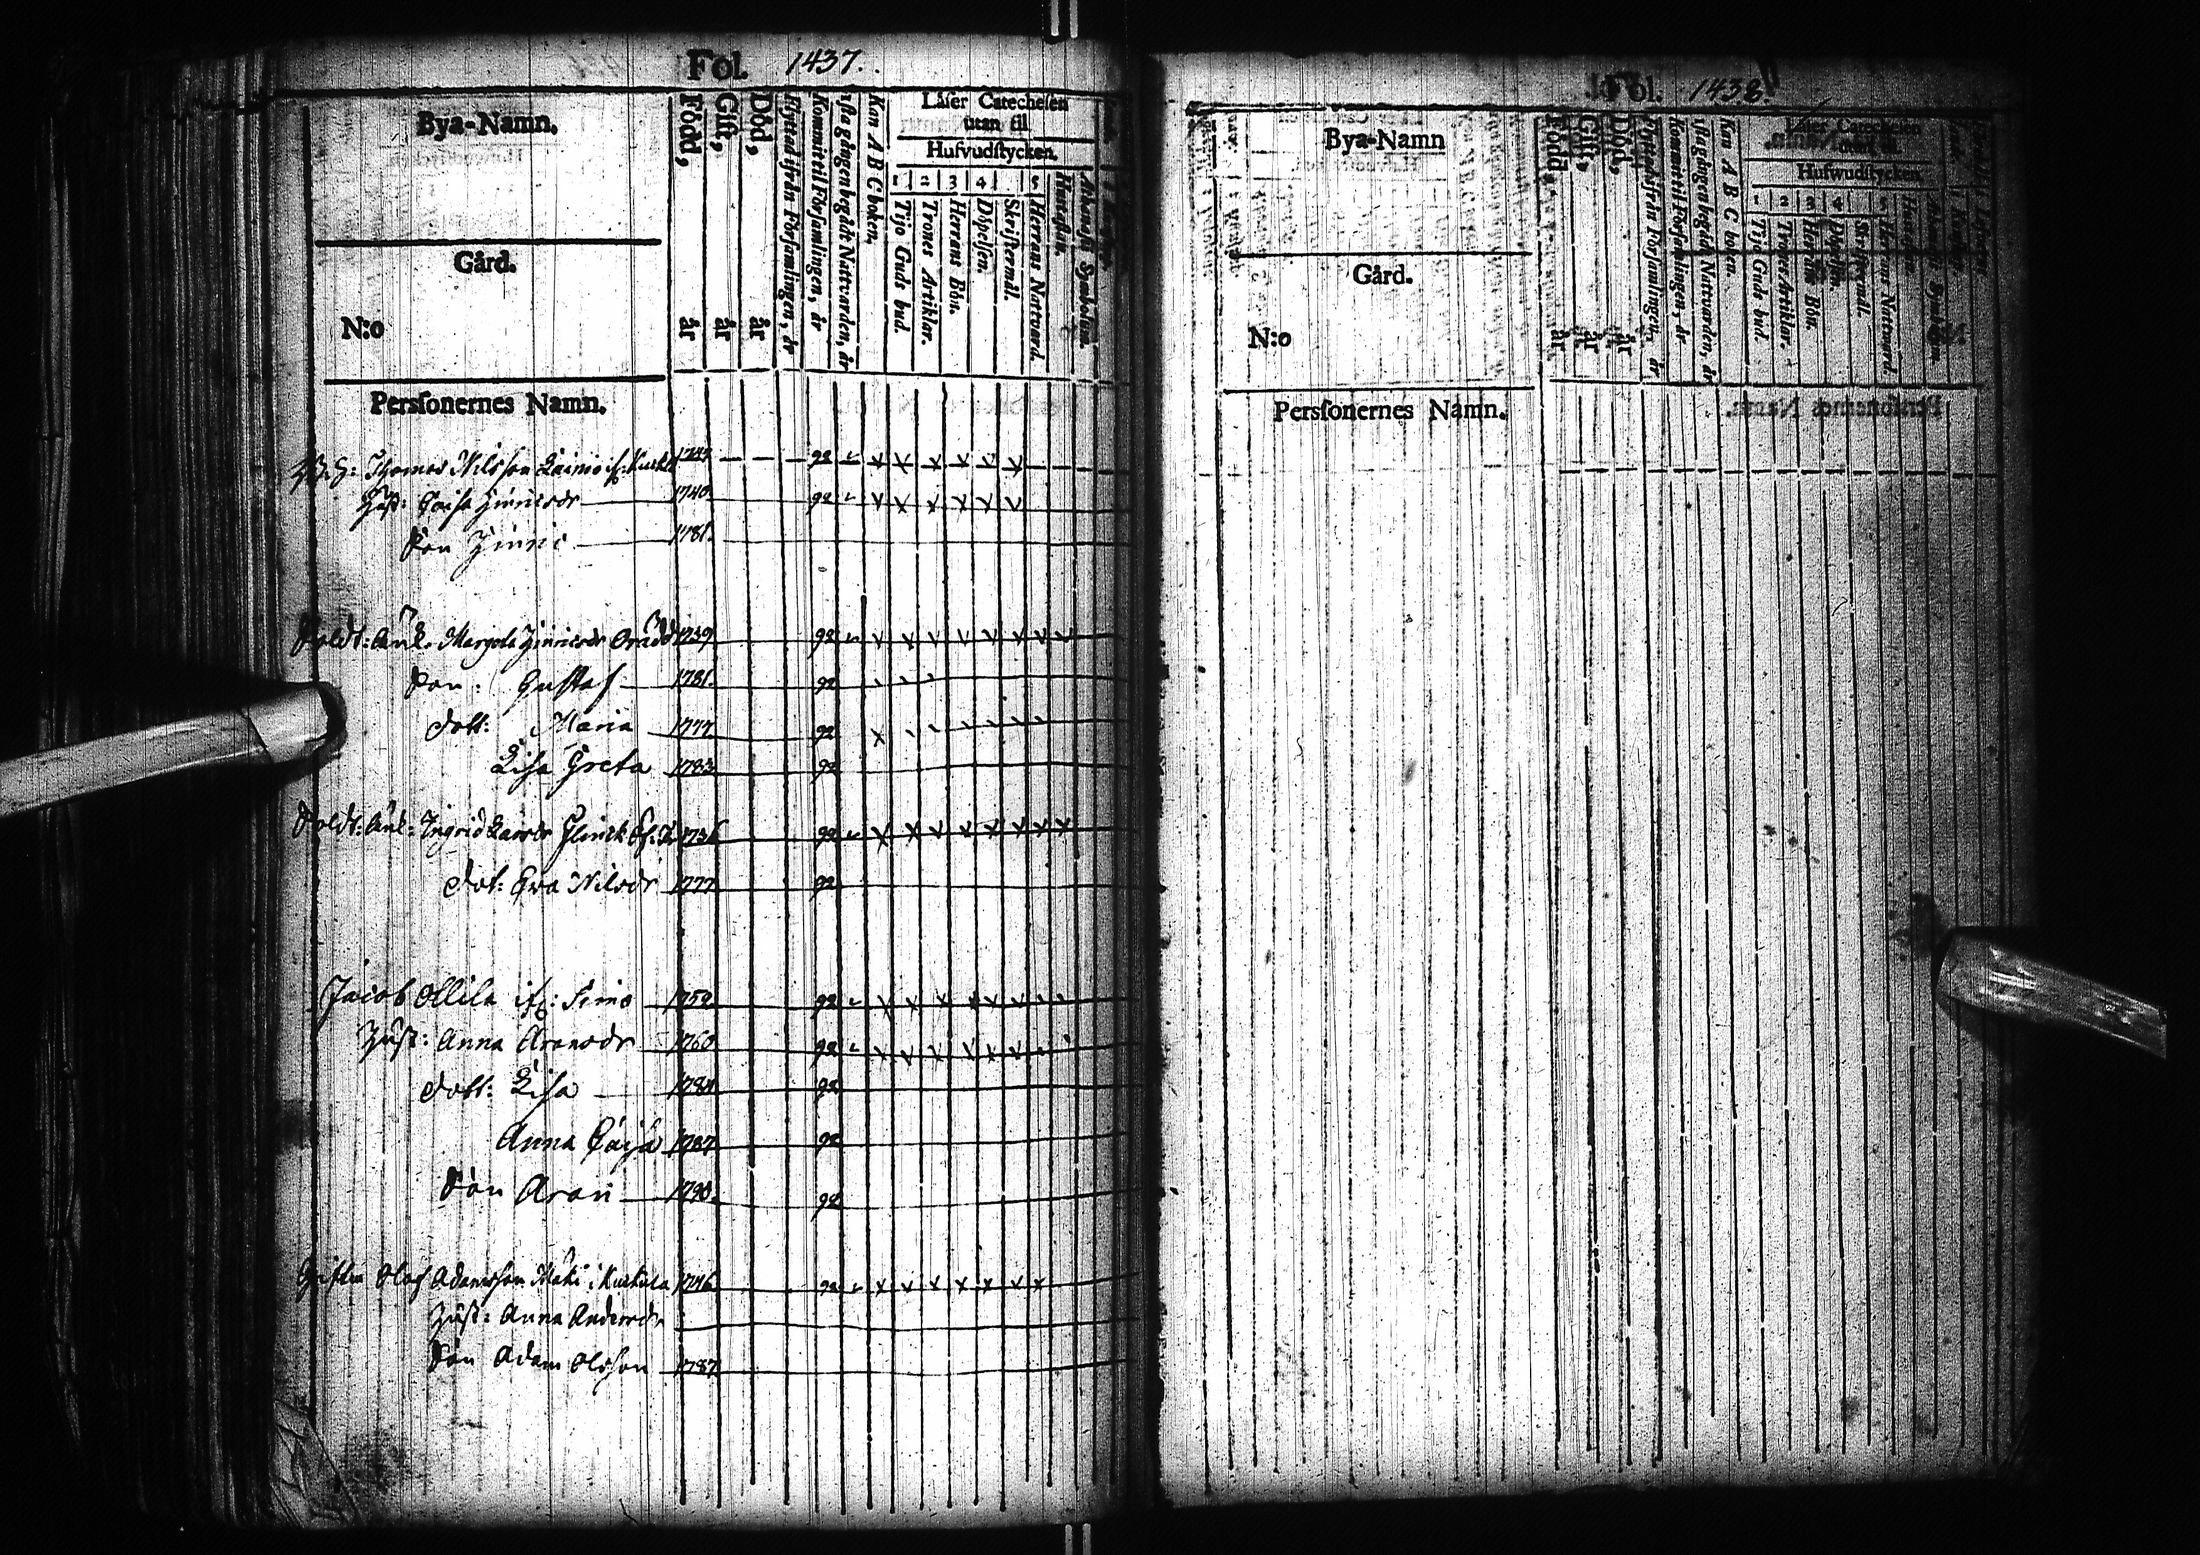 Fol. 1437.
Bya-Namn.
Gård.
N:o
Persfonernes Namn.
Född, år
Gift, år
Död, år
Flyttad ifrån Församlingen, år
Kommit til Församlingen, år
1sta gången begådt Nattvarden, år
Kan A B C boken,
Läser Catechesen utan til
Hufvudstycken.
1 2 3 4 5
Tijo Guds bud.
Trones Artiklar.
Herrans Bön.
Döpelsen.
Skriftermål.
Herrans Nattvard.
Hustaflan.
Athanasii Symbolum.
Thomas Nilsson Lainio 1743 92
Hust: Caisa Hinricsdr 1740 92
Son Hinric 1781.
Soldt: Änk. Margeta Hinricsdr 1739 92
Son: Gustaf 1781. 92
Dott: Maria 1777 92
Lisa Greta 1783 92
Soldt: Änk: Ingrid Larsdr 1736 92
Dot: Ewa Nilsdr 1777 92
Jacob Ollila if: Simo 1752 92
Hust: Anna Aronsdr 1760 92
Dott: Lisa 1784 92
Anna Caisa 1787 92
Son Aron 1790. 92
Olof Adamsson Mäki 1746 92
Hust: Anna Andersdr
Son Adam Olsson 1787
Fol. 1438.
Bya-Namn
Gård.
N:o
Persfonernes Namn.
Född, år
Gift, år
Död, år
Flyttad ifrån Församlingen, år
Kommit til Församlingen, år
1sta gången begådt Nattvarden, år
Kan A B C boken.
Läser Catechesen utan til
Hufwudstycken
1 2 3 4 5
Tijo Guds bud.
Trones Artiklar.
Herrans Bön.
Döpelsen.
Skriftermål.
Herrans Nattvard.